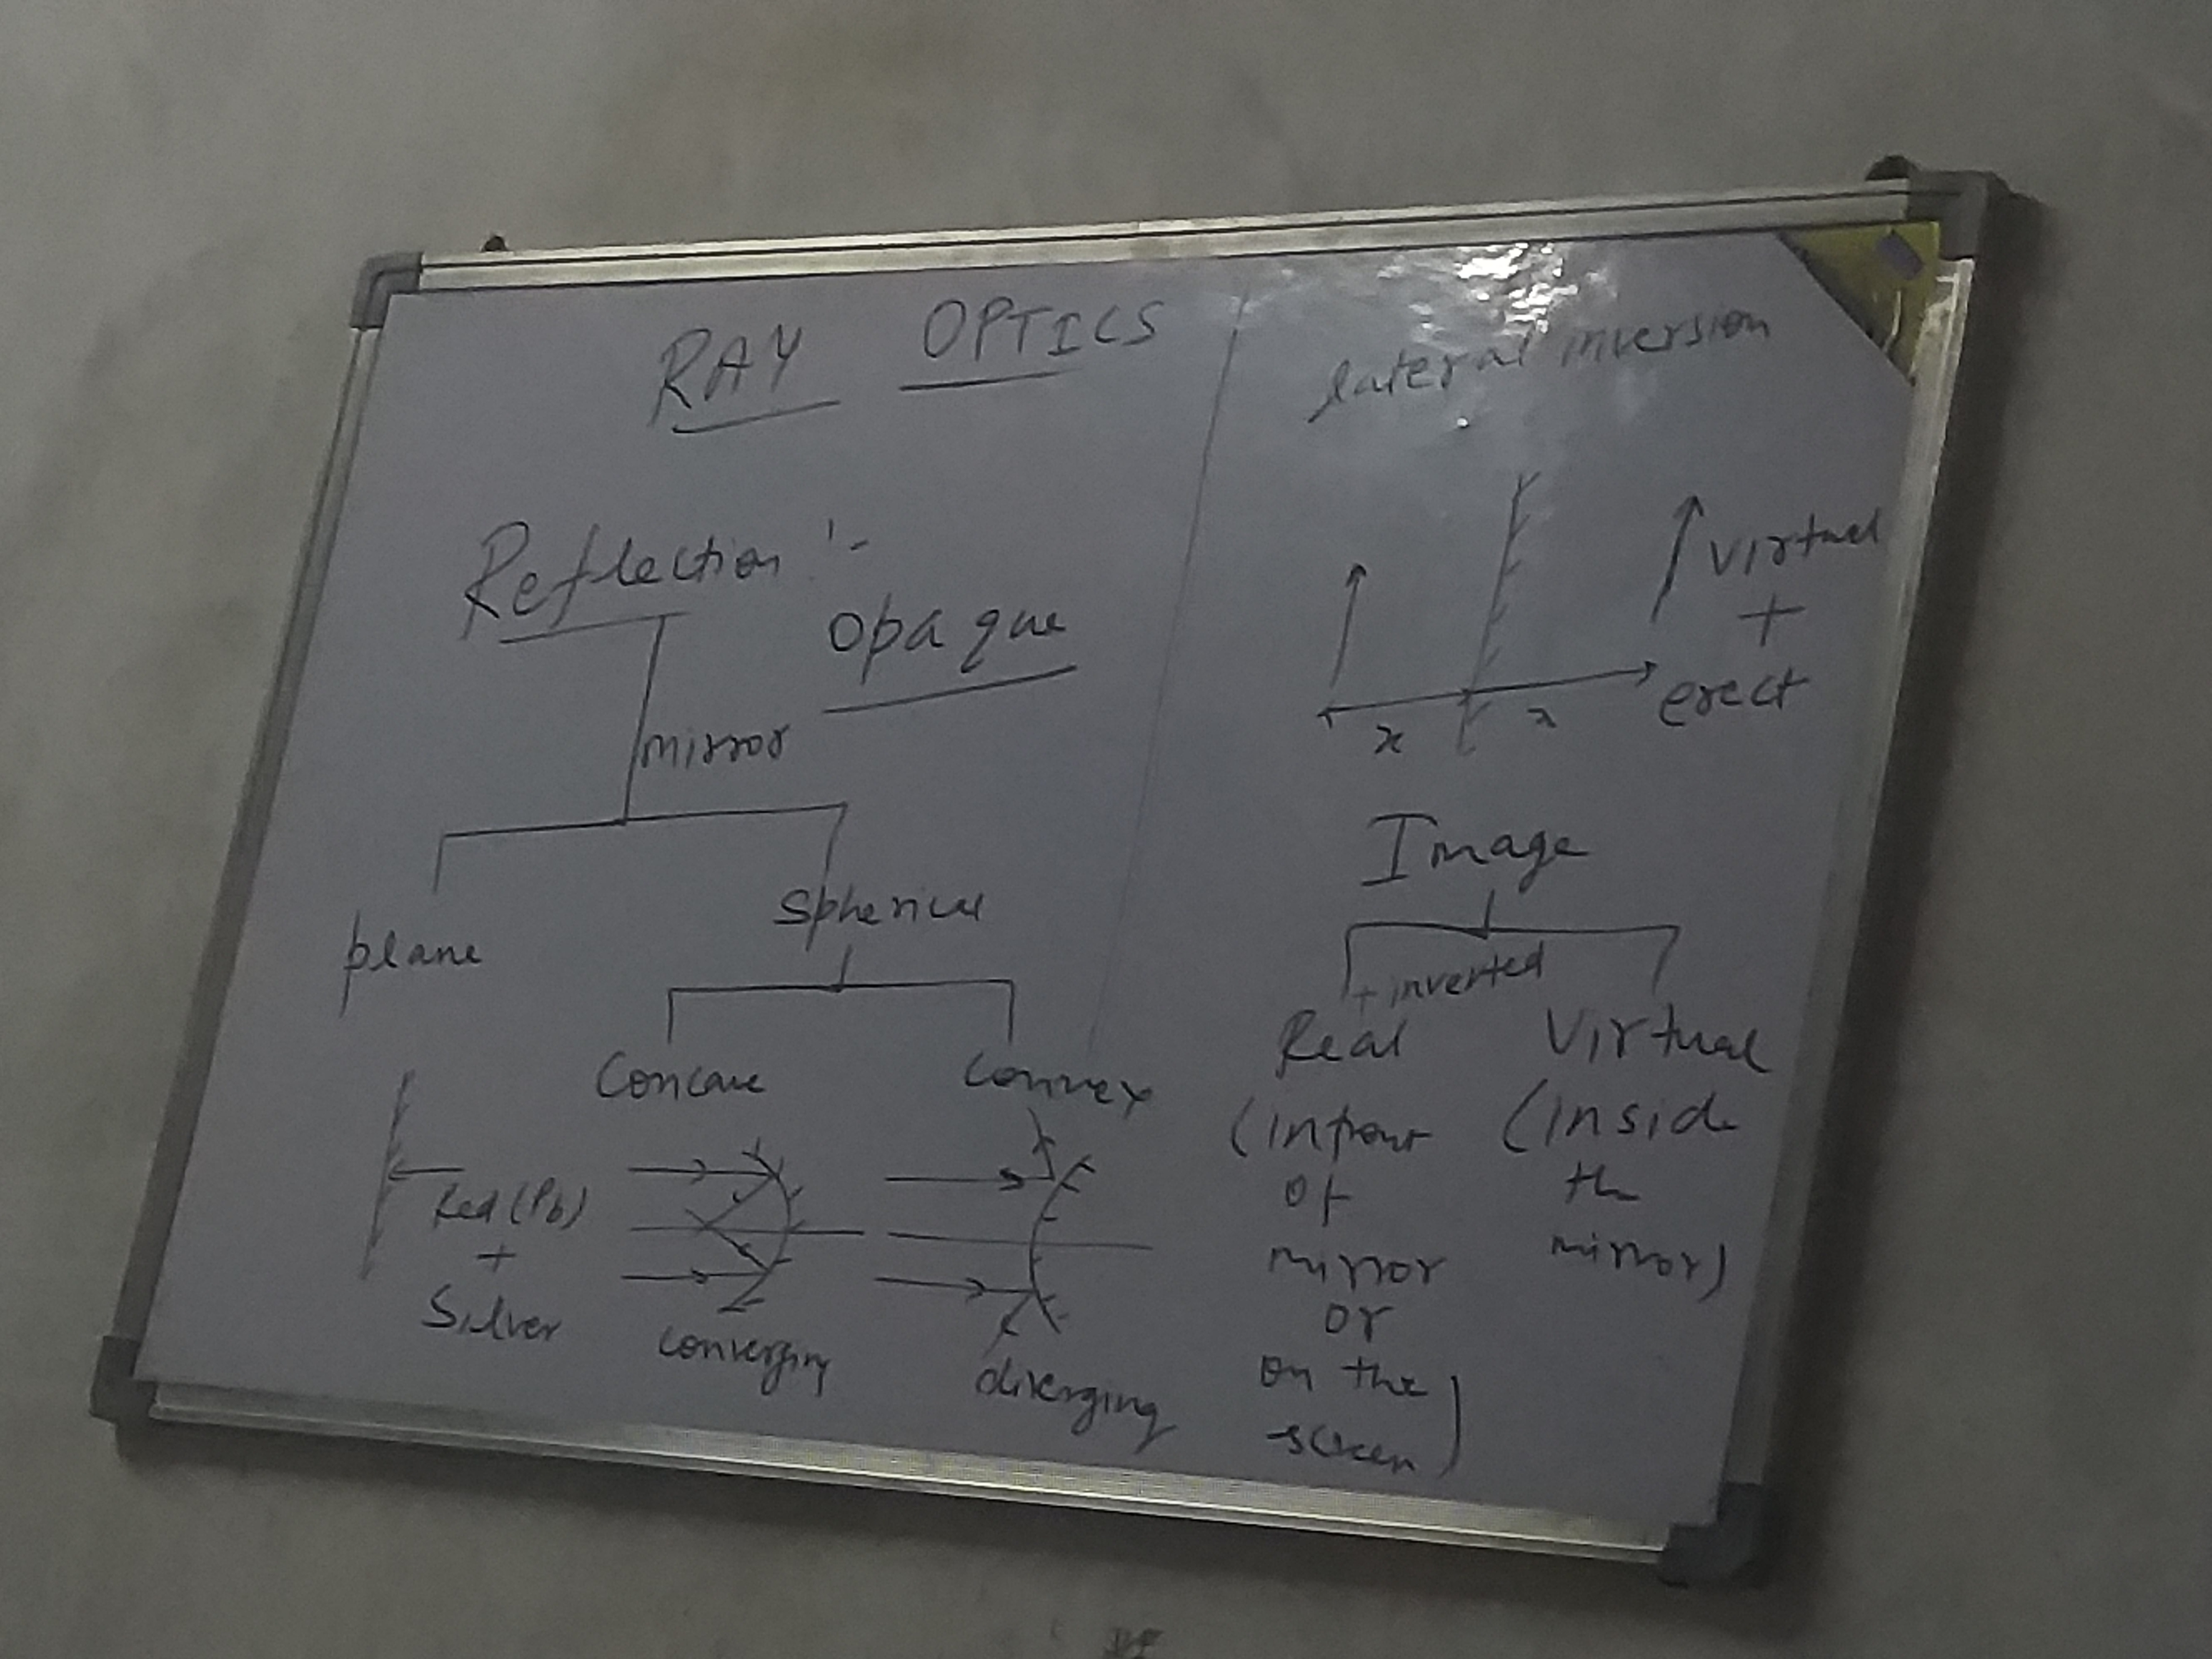 RAY OPTICS
Reflection :-
opaque
mirror
plane
Spherical
Concave
Convex
Red (Pb)
+
Silver
converging
diverging
lateral inversion
Virtual
+
erect
x
x
Image
+ inverted
Real
(infront
of
mirror
or
on the
screen)
Virtual
(inside
the
mirror)